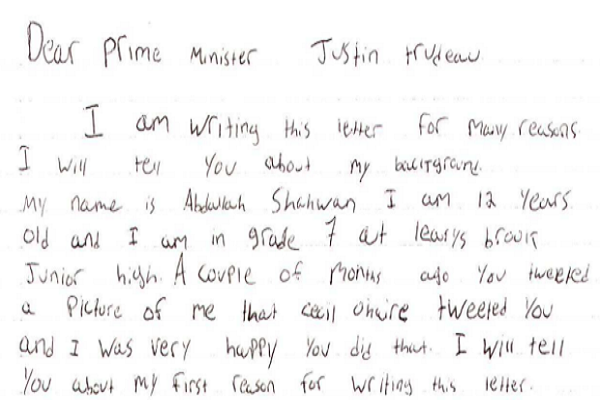 Dear Prime Minister Justin trudeau
I am writing this letter for many reasons
I will tell you about my background.
My name is Abdallah Shahwan I am 12 years
old and I am in grade 7 at learys brook
Junior high. A couple of months ago you tweeted
a Picture of me that cecil ohaire tweeted you
and I was very happy you did that. I will tell
you about my first reason for writing this letter.